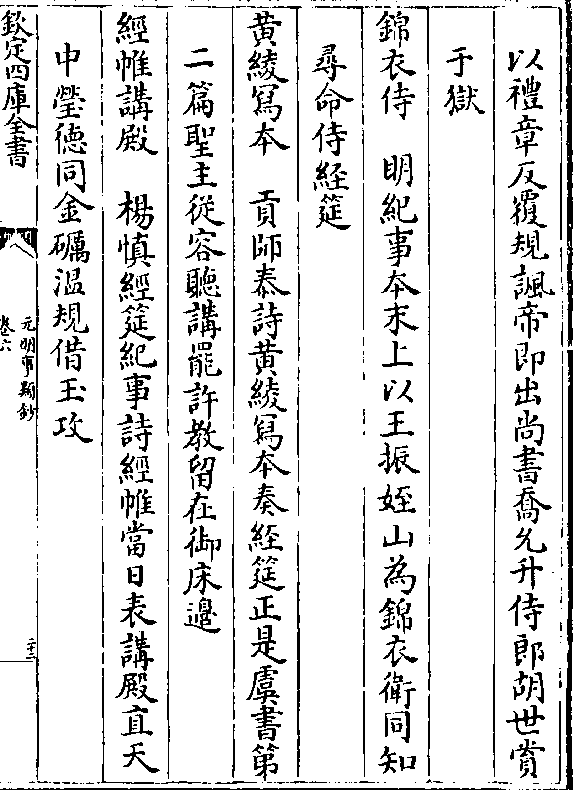 以禮章反覆規諷帝即出尚書喬允升侍郎胡世賞
于獄
錦衣侍　明紀事本末上以王振姪山為錦衣衛同知
尋命侍經筵
黃綾寫本　貢師泰詩黃綾寫本奏經筵正是虞書第
二篇聖主從容聽講罷許教留在御床邊
經帷講殿　楊慎經筵紀事詩經帷當日表講殿直天
中瑩德同金礪溫規借玉攻
欽定四庫全書
元明事類鈔
卷六
二十二